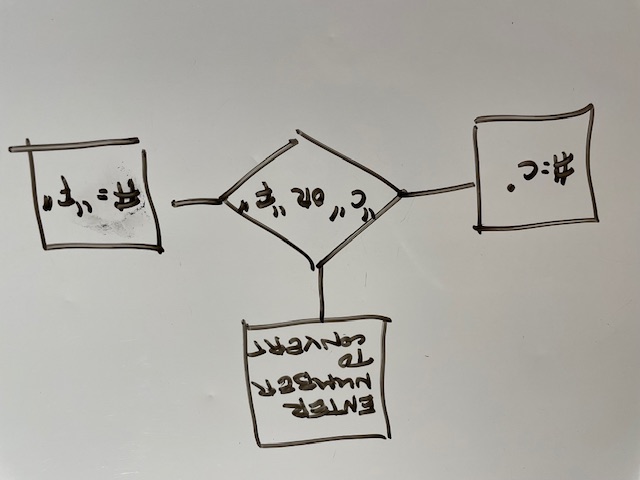 ENTER
NUMBER
TO
CONVERT
"C" OR "F"
#=C°
#="F"